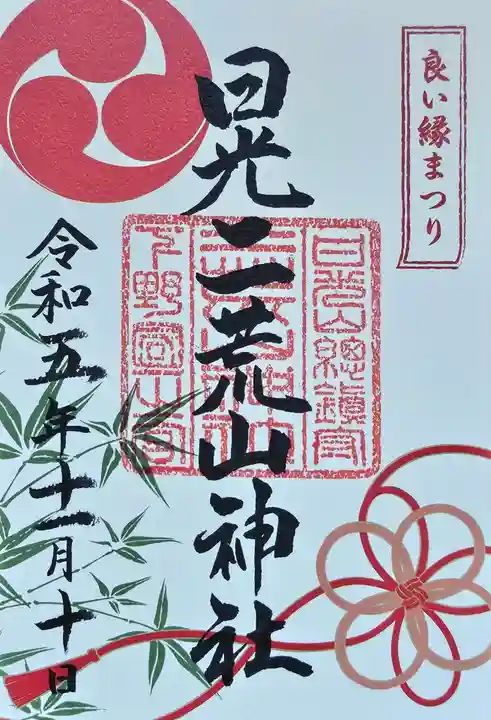 良い縁まつり
日光二荒山神社
日光山總鎮守
下野國一之宮
令和五年十一月十日